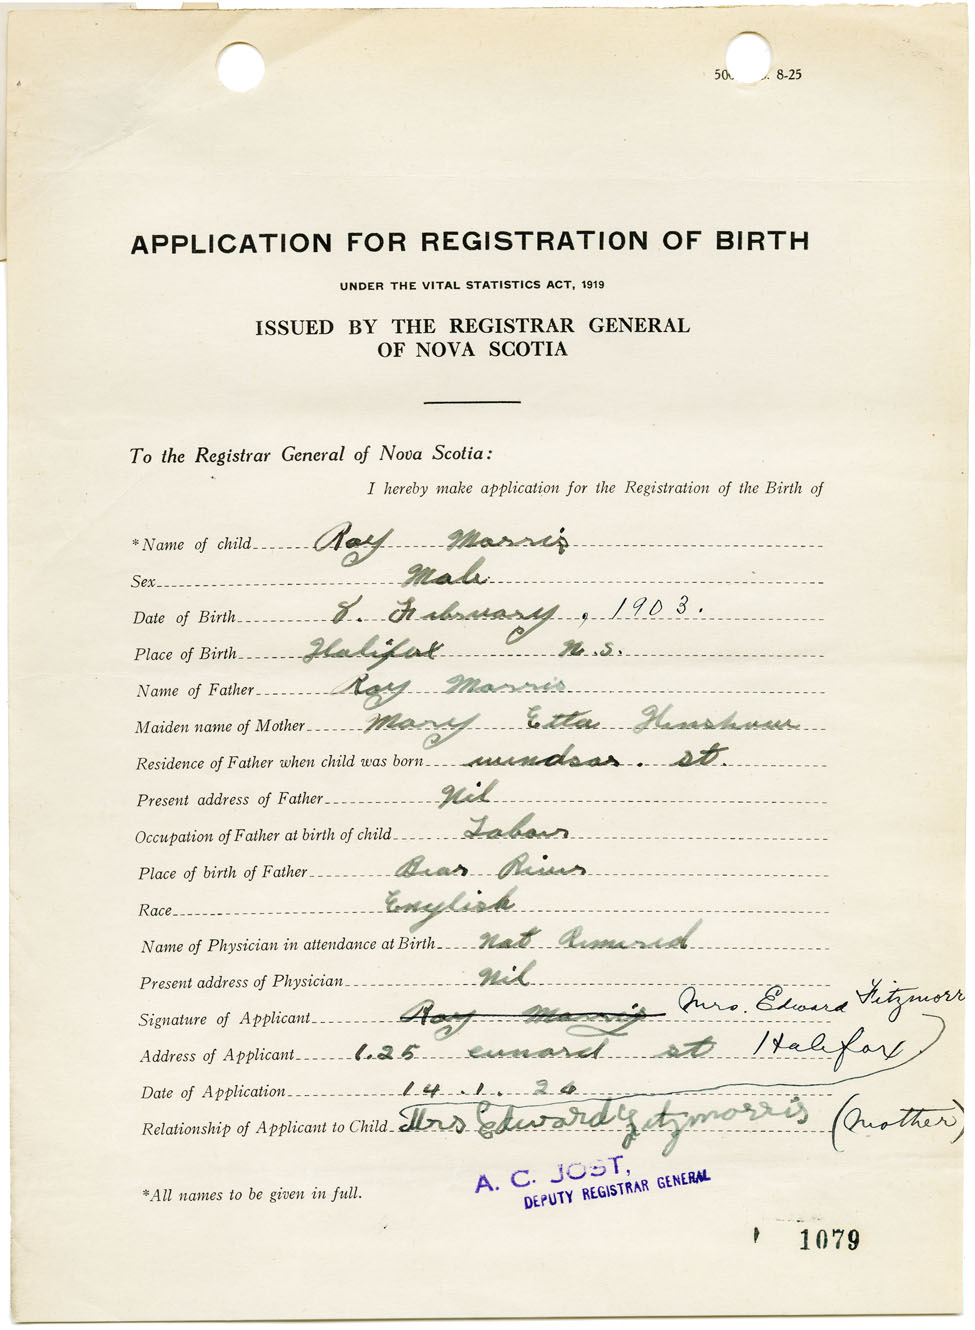 8-25
APPLICATION FOR REGISTRATION OF BIRTH
UNDER THE VITAL STATISTICS ACT, 1919
ISSUED BY THE REGISTRAR GENERAL
OF NOVA SCOTIA
To the Registrar General of Nova Scotia:
I hereby make application for the Registration of the Birth of
*Name of child Roy Morris
Sex Male
Date of Birth 8. February, 1903.
Place of Birth Halifax N.S.
Name of Father Roy Morris
Maiden name of Mother Mary Etta
Residence of Father when child was born windsor. st.
Present address of Father Nil
Occupation of Father at birth of child Labour
Place of birth of Father Bear River
Race English
Name of Physician in attendance at Birth not
Present address of Physician Nil
Signature of Applicant Roy Morris Mrs. Edward Fitzmorr
Address of Applicant 125 cunard st Halifax
Date of Application 14.1.26
Relationship of Applicant to Child Mrs Edward Fitzmorris (Mother)
*All names to be given in full.
A. C. JOST,
DEPUTY REGISTRAR GENERAL
1079